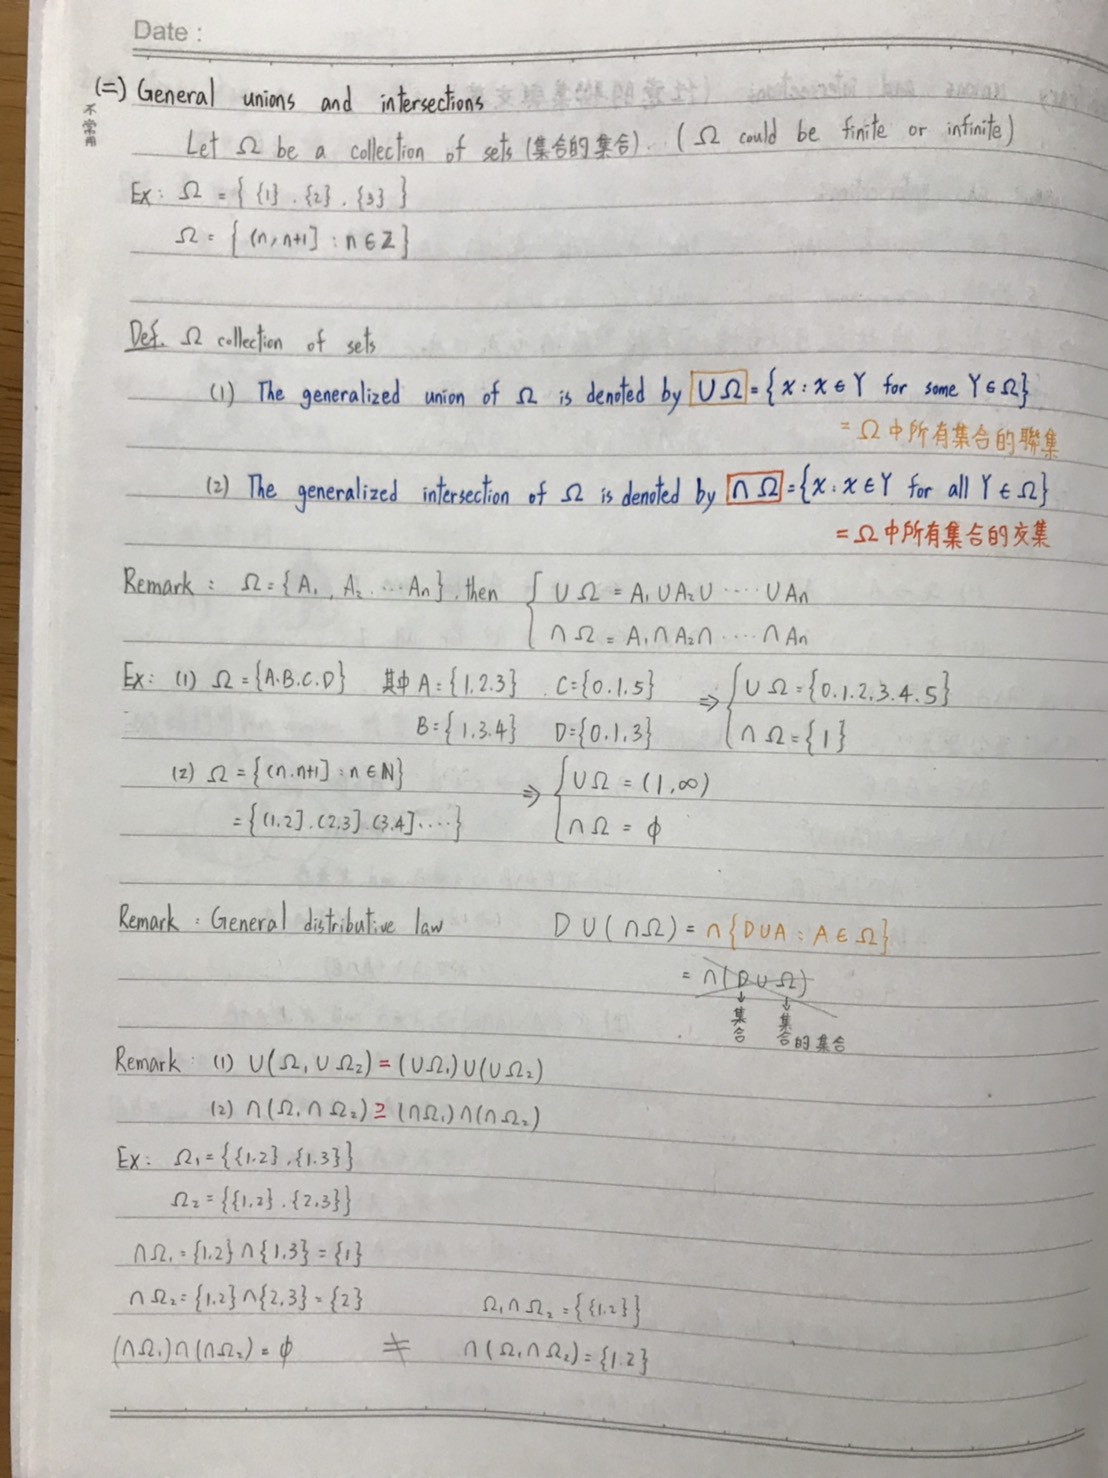 Date :
(二) General unions and intersections
不常用
Let Ω be a collection of sets (集合的集合). (Ω could be finite or infinite)
Ex: Ω = { {1} . {2} . {3} }
Ω = { (n, n+1] : n ∈ Z }
Def. Ω collection of sets
(1) The generalized union of Ω is denoted by ∪Ω = {x : x ∈ Y for some Y ∈ Ω}
= Ω 中所有集合的聯集
(2) The generalized intersection of Ω is denoted by ∩Ω = {x : x ∈ Y for all Y ∈ Ω}
= Ω 中所有集合的交集
Remark : Ω = {A₁, A₂ ... An}, then { ∪Ω = A₁ ∪ A₂ ∪ ···· ∪ An
∩Ω = A₁ ∩ A₂ ∩ ···· ∩ An
Ex: (1) Ω = {A.B.C.D} 其中 A = {1.2.3} . C = {0.1.5} ⇒ { ∪Ω = {0.1.2.3.4.5}
B = {1.3.4} D = {0.1.3} ∩Ω = {1}
(2) Ω = {(n.n+1] : n ∈ N} ⇒ { ∪Ω = (1,∞)
= {(1,2] . (2,3] . (3,4] ....} ∩Ω = ϕ
Remark : General distributive law D ∪ (∩Ω) = ∩{D∪A : A ∈ Ω}
= ∩(D ∪ Ω)
↓ ↓
集合 集合的集合
Remark : (1) ∪(Ω₁ ∪ Ω₂) = (∪Ω₁) ∪ (∪Ω₂)
(2) ∩(Ω₁ ∩ Ω₂) ⊇ (∩Ω₁) ∩ (∩Ω₂)
Ex: Ω₁ = {{1.2} . {1.3}}
Ω₂ = {{1,2} . {2,3}}
∩Ω₁ = {1.2} ∩ {1.3} = {1}
∩Ω₂ = {1.2} ∩ {2.3} = {2} Ω₁ ∩ Ω₂ = {{1.2}}
(∩Ω₁) ∩ (∩Ω₂) = ϕ ≠ ∩(Ω₁ ∩ Ω₂) = {1.2}